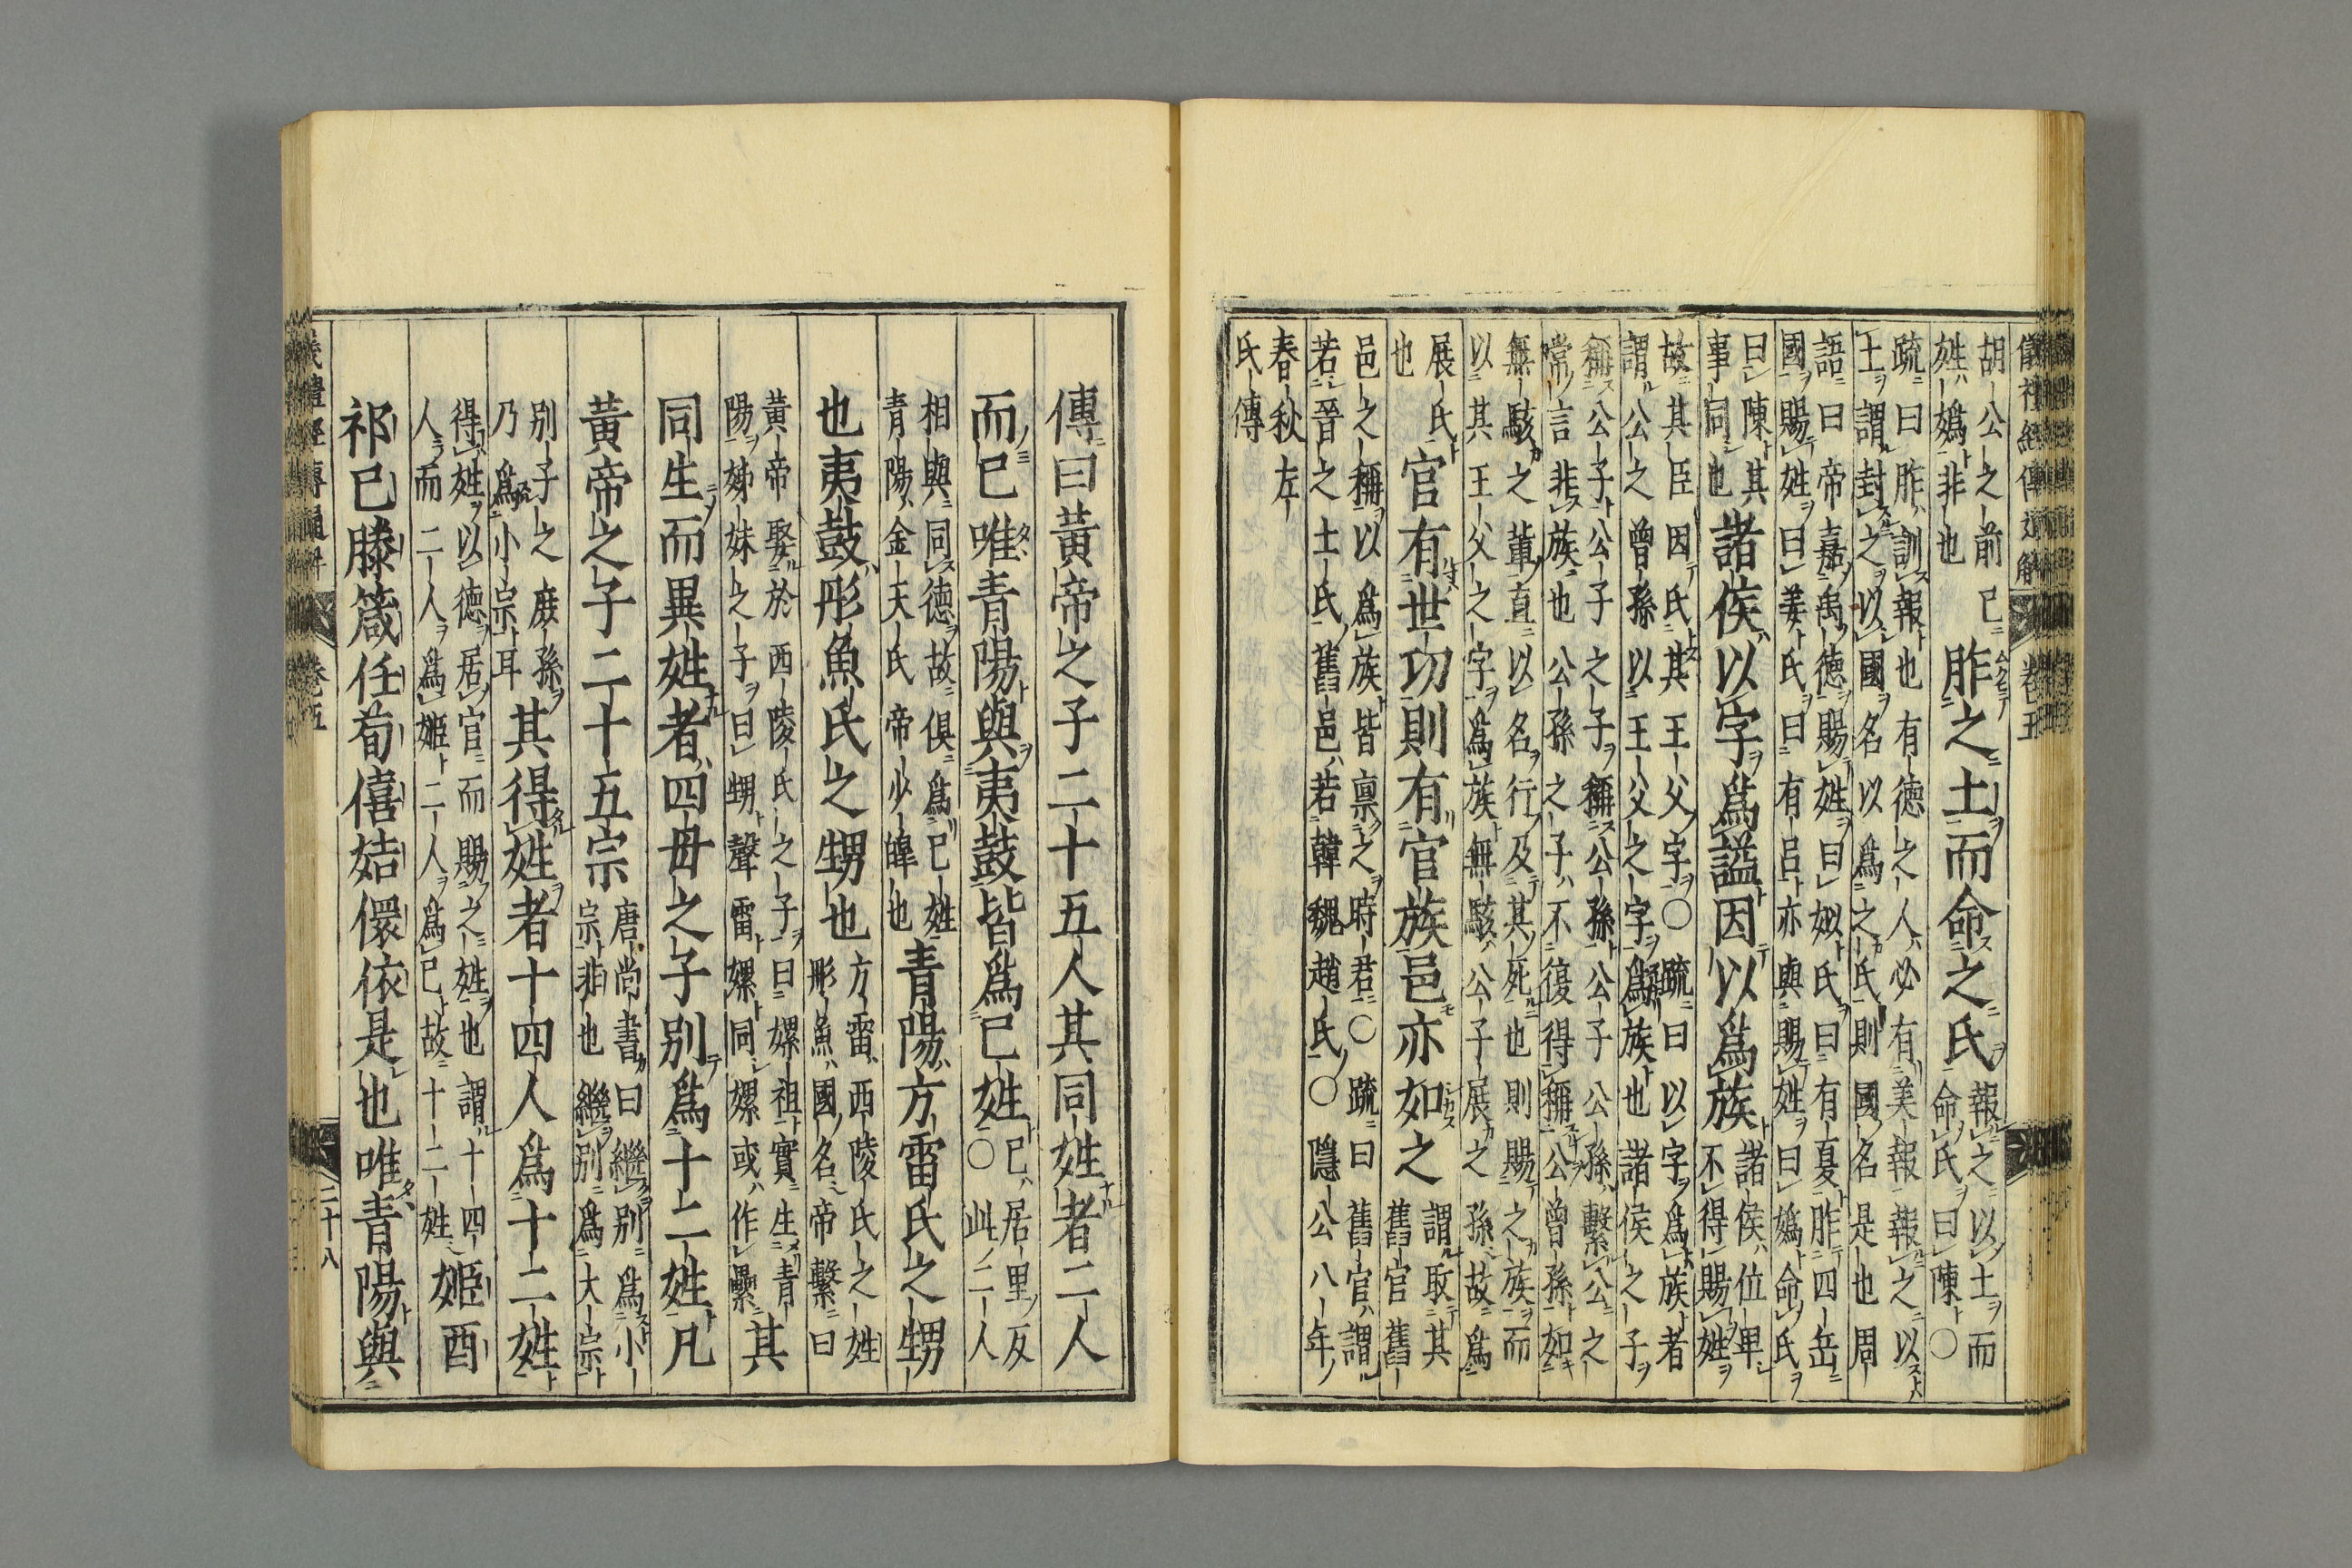 儀禮經傳通解
卷五
胡公之前已
姓媯非也
胙之土而命之氏
報之以土而
命氏曰陳○
疏曰胙訓報也有德之人必有美報報之以
土謂封之以國名以爲之氏則國名是也周
語曰帝嘉禹德賜姓曰姒氏曰有夏胙四岳
國賜姓曰姜氏曰有呂亦與賜姓曰媯命氏
曰陳其
事同也
諸侯以字爲謚因以爲族
諸侯位卑
不得賜姓
故其臣因氏其王父字○疏曰以字爲族者
謂公之曾孫以王父之字爲族也諸侯之子
稱公子公子之子稱公孫公孫之子不復
常言非族也公孫之子不復得稱公曾孫如
無駭之輩直以名行及其死也則賜之族而
以其王父之字爲族無駭公子展之孫故爲
展氏
也
官有世功則有官族邑亦如之
謂取其
舊官舊
邑之稱以爲族皆稟之時君○疏曰舊官謂
若晉之士氏舊邑若韓魏趙氏○隱公八年
春秋左
氏傳
傳曰黃帝之子二十五人其同姓者二人
而已唯青陽與夷鼓皆爲己姓
己居里反
○此二人
相與同德故俱爲己姓
青陽金天氏帝少皥也
青陽方雷氏之甥
也夷鼓彤魚氏之甥也
方雷西陵氏之姓
彤魚國名帝繫曰
黃帝娶於西陵氏之子曰嫘祖實生青
陽姊妹之子曰甥聲雷嫘同嫘或作纍
其
同生而異姓者四母之子別爲十二姓凡
黃帝之子二十五宗
唐尚書曰繼別爲小
宗非也繼別爲大宗
別子之庶孫
乃爲小宗耳
其得姓者十四人爲十二姓
得姓以德居官而賜之姓也謂十四
人而二人爲姬二人爲己故十二姓
姬酉
祁己滕箴任荀僖姞儇依是也唯青陽與
儀禮經傳通解
卷五
二十八